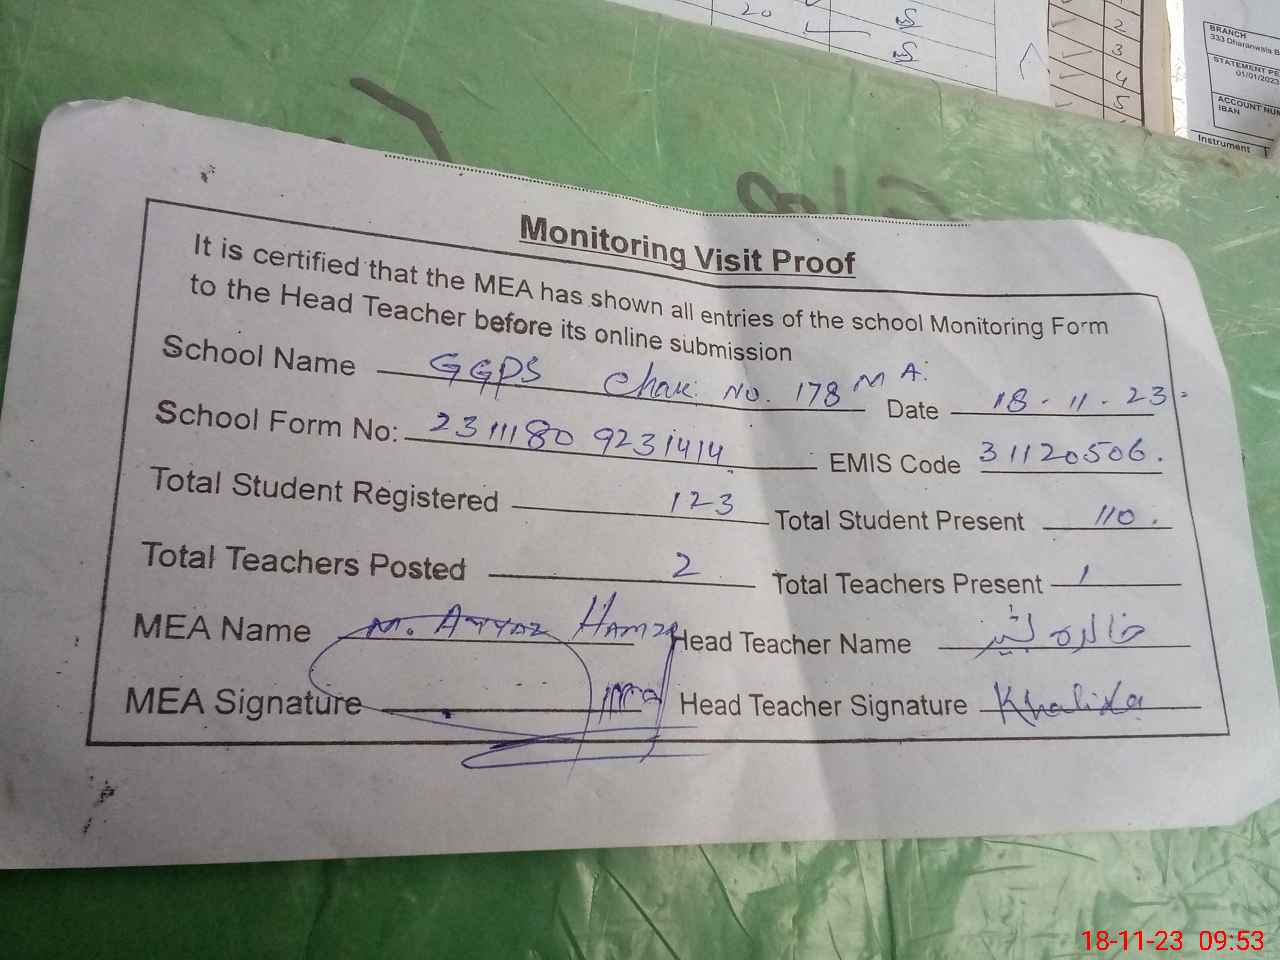 20
S
S
2
3
4
5
BRANCH
333 Dharanwala B
STATEMENT PE
01/01/2023
ACCOUNT NUM
IBAN
Instrument
Monitoring Visit Proof
It is certified that the MEA has shown all entries of the school Monitoring Form
to the Head Teacher before its online submission
School Name GGPS Chak No. 178 M A: Date 18.11.23
School Form No: 2311180 9231414 EMIS Code 31120506.
Total Student Registered 123 Total Student Present 110.
Total Teachers Posted 2 Total Teachers Present 1
MEA Name M. AYYAZ HAMZA Head Teacher Name خالدہ بشیر
MEA Signature Head Teacher Signature Khalida
18-11-23 09:53